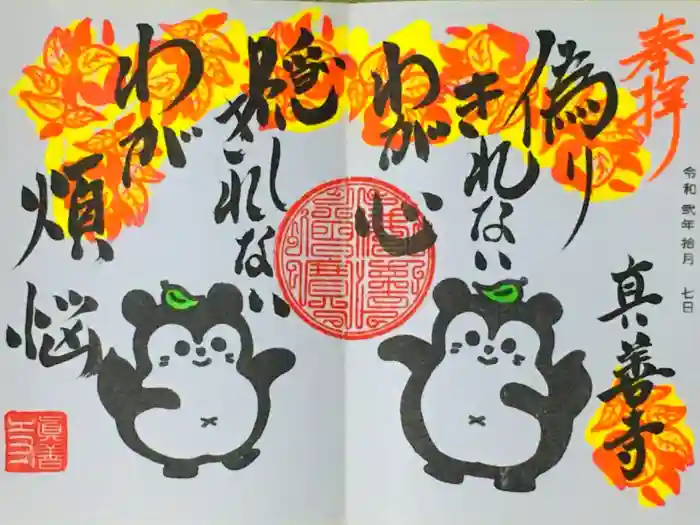 奉拝
令和弐年拾月 七日
真善寺
偽り
きれない
わが
心
隠し
きれない
わが
煩悩